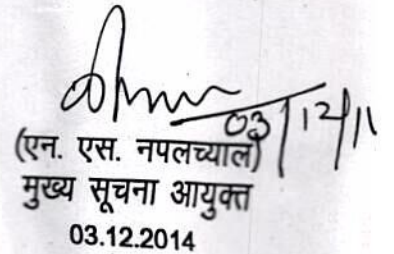 03/12/11
(एन. एस. नपलच्याल)
मुख्य सूचना आयुक्त
03.12.2014